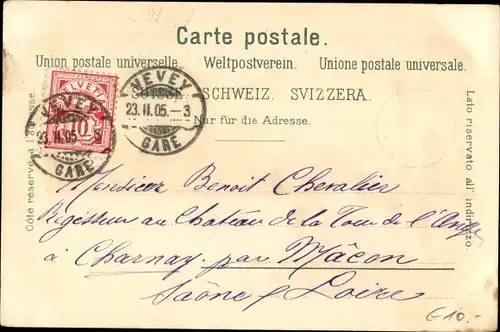 Carte postale.
Union postale universelle. Weltpostverein. Unione postale universale.
SUISSE. SCHWEIZ. SVIZZERA.
Nur für die Adresse.
Côté réservé à l'adresse.
Lato riservato all' indirizzo.
HELVETIA
10
VEVEY
23.II.05.–3
GARE
VEVEY
23.II.05.–3
GARE
Monsieur Benoit Chevalier
Régisseur au Château de la Tour de l'Ange
à Charnay par Mâcon
Saône & Loire
€10.-